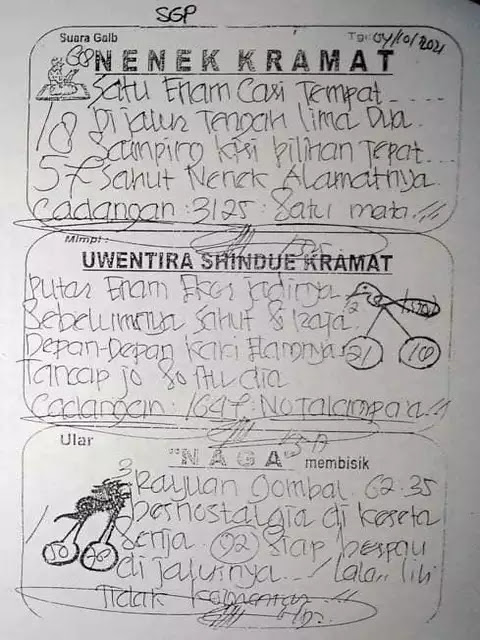 SGP
Suara Gaib
Tgl: 04/10/2021
NENEK KRAMAT
Satu Enam Casi Tempat
18 Di jalur Tengah lima Dua
Sampiro kisi pilihan Tepat
57 Sahut Nenek Alamatnya
Cadangan : 3125 : Satu mata
Mimpi :
UWENTIRA SHINDUE KRAMAT
Putar Enam Ekor jadinya
Sebelumnya Sahut 8 Raja
Depan-Depan Kaki Enamnya
21 10
Tancap jo 80 Itu dia
Cadangan : 1647 :
Ular
"NAGA" membisik
3 Rayuan Gombal 62-35
bernostalgia di kereta
Senja (02) Siap
di jalurnya
Tidak Komentar